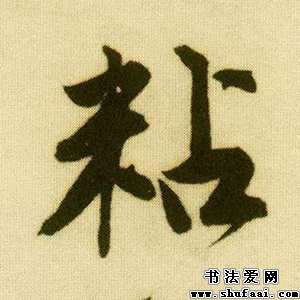 粘
书法爱网
www.shufaai.com